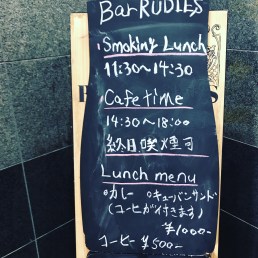 Bar RUDIES
Smoking Lunch
11:30~14:30
Cafe time
14:30~18:00
終日喫煙可
Lunch menu
○カレー ○キューバンサンド
(コーヒーが付きます)
¥1000-
コーヒー ¥500-